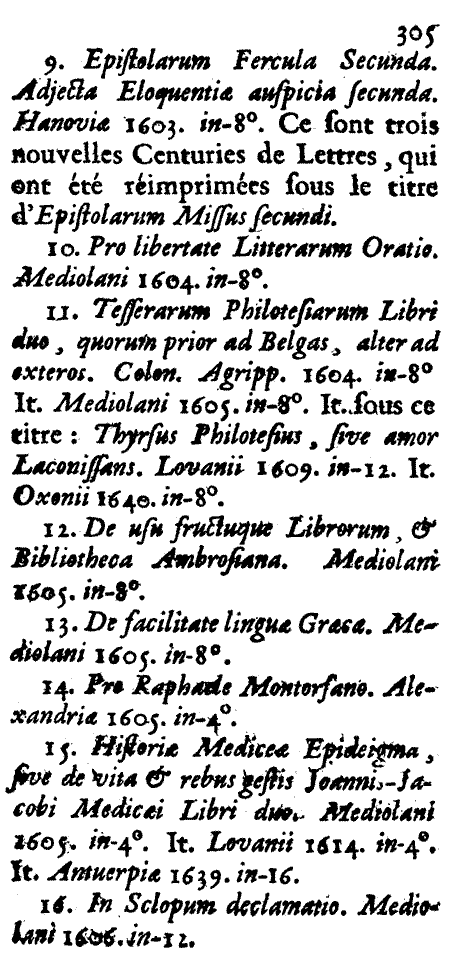 305
9. Epiſtolarum Fercula Secunda.
Adjecta Eloquentiæ auſpicia ſecunda.
Hanoviæ 1603. in-8°. Ce ſont trois
nouvelles Centuries de Lettres, qui
ont été réimprimées ſous le titre
d'Epiſtolarum Miſſus ſecundi.
10. Pro libertate Litterarum Oratio.
Mediolani 1604. in-8°.
11. Teſſerarum Philoteſiarum Libri
duo, quorum prior ad Belgas, alter ad
exteros. Colon. Agripp. 1604. in-8°
It. Mediolani 1605. in-8°. It. ſous ce
titre : Thyrſus Philoteſius, ſive amor
Laconiſſans. Lovanii 1609. in-12. It.
Oxonii 1640. in-8°.
12. De uſu fructuque Librorum, &
Bibliotheca Ambroſiana. Mediolani
1605. in-8°.
13. De facilitate linguæ Græcæ. Me-
diolani 1605. in-8°.
14. Pro Raphaele Montorfano. Ale-
xandriæ 1605. in-4°.
15. Hiſtoriæ Mediceæ Epideigma,
ſive de vita & rebus geſtis Joannis-Ja-
cobi Medicæi Libri duo. Mediolani
1605. in-4°. It. Lovanii 1614. in-4°.
It. Antuerpiæ 1639. in-16.
16. In Sclopum declamatio. Medio-
lani 1606. in-12.